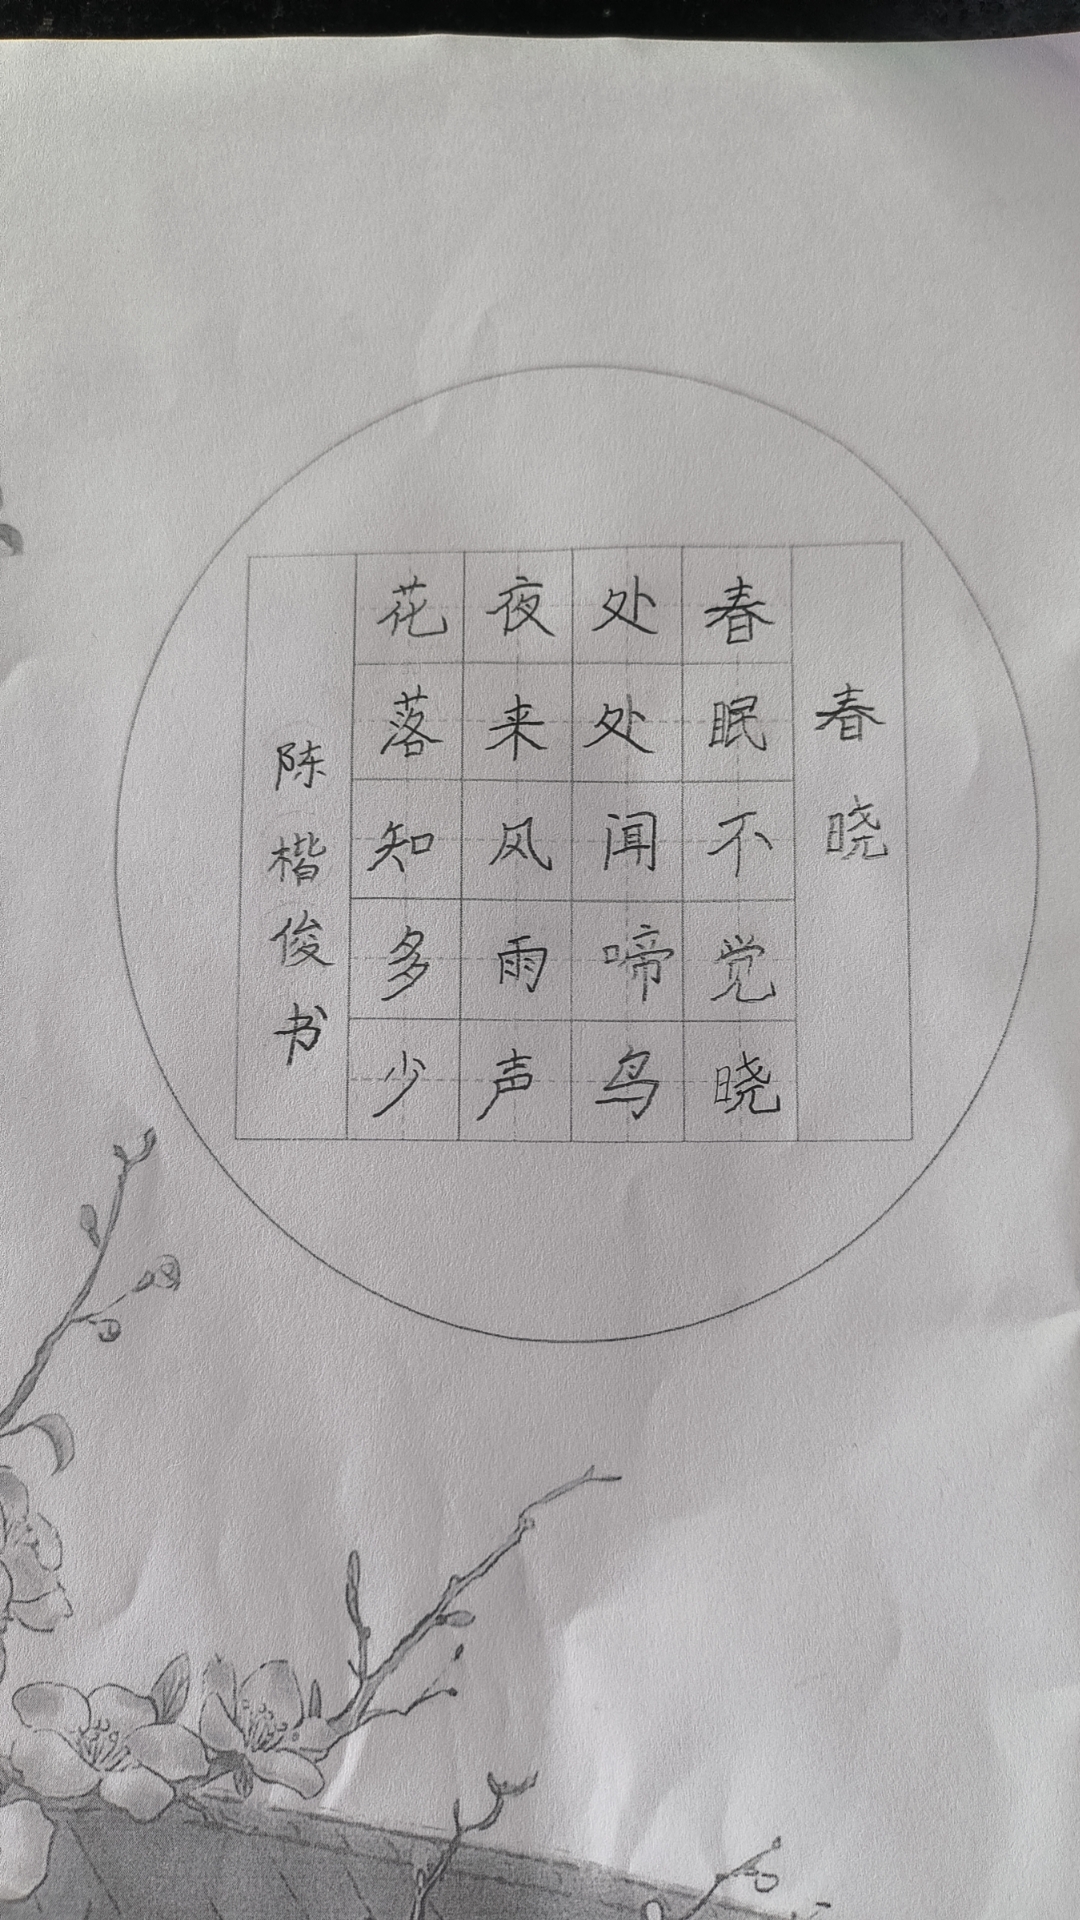 春晓
春眠不觉晓
处处闻啼鸟
夜来风雨声
花落知多少
陈楷俊书